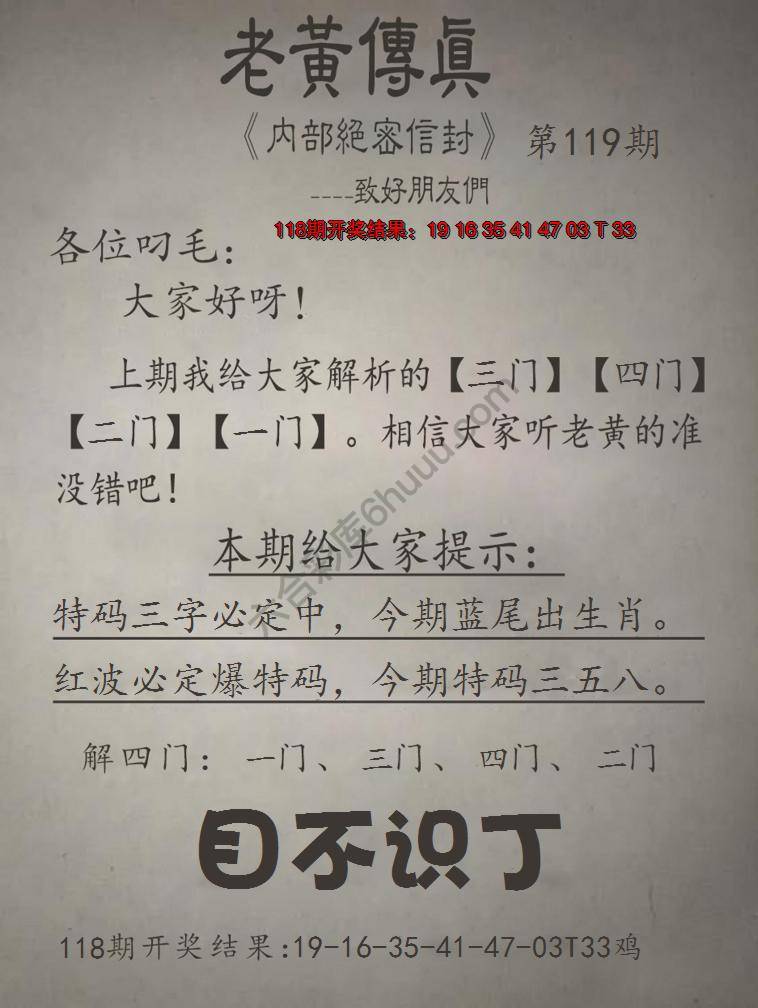 老黃傳真
《内部絕密信封》 第119期
----致好朋友們
118期开奖结果：19 16 35 41 47 03 T 33
各位叼毛：
大家好呀！
上期我给大家解析的【三门】【四门】
【二门】【一门】。相信大家听老黄的准
没错吧！
本期给大家提示：
特码三字必定中，今期蓝尾出生肖。
红波必定爆特码，今期特码三五八。
解四门：一门、三门、四门、二门
目不识丁
118期开奖结果:19-16-35-41-47-03T33鸡
六合彩库6huuu.com